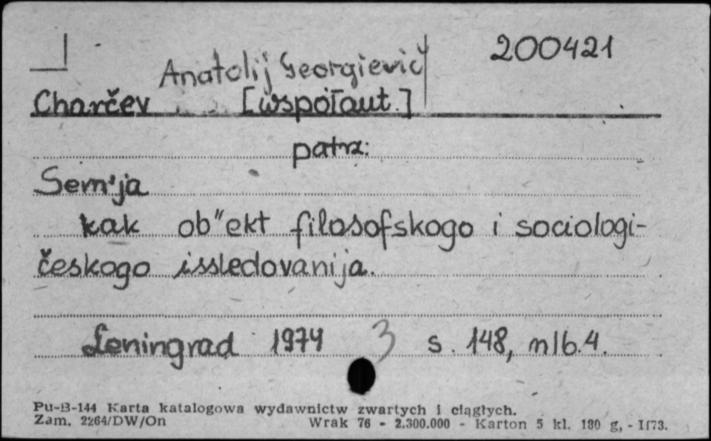 200421
Anatolij Georgievič
Charčev [współaut.]
patrz:
Sem'ja
kak ob"ekt filosofskogo i sociologi-
českogo issledovanija.
Leningrad 1974 3 s. 148, nlb. 4.
Pu-B-144 Karta katalogowa wydawnictw zwartych i ciągłych.
Zam. 2264/DW/On Wrak 76 - 2.300.000 - Karton 5 kl. 180 g, - II73.